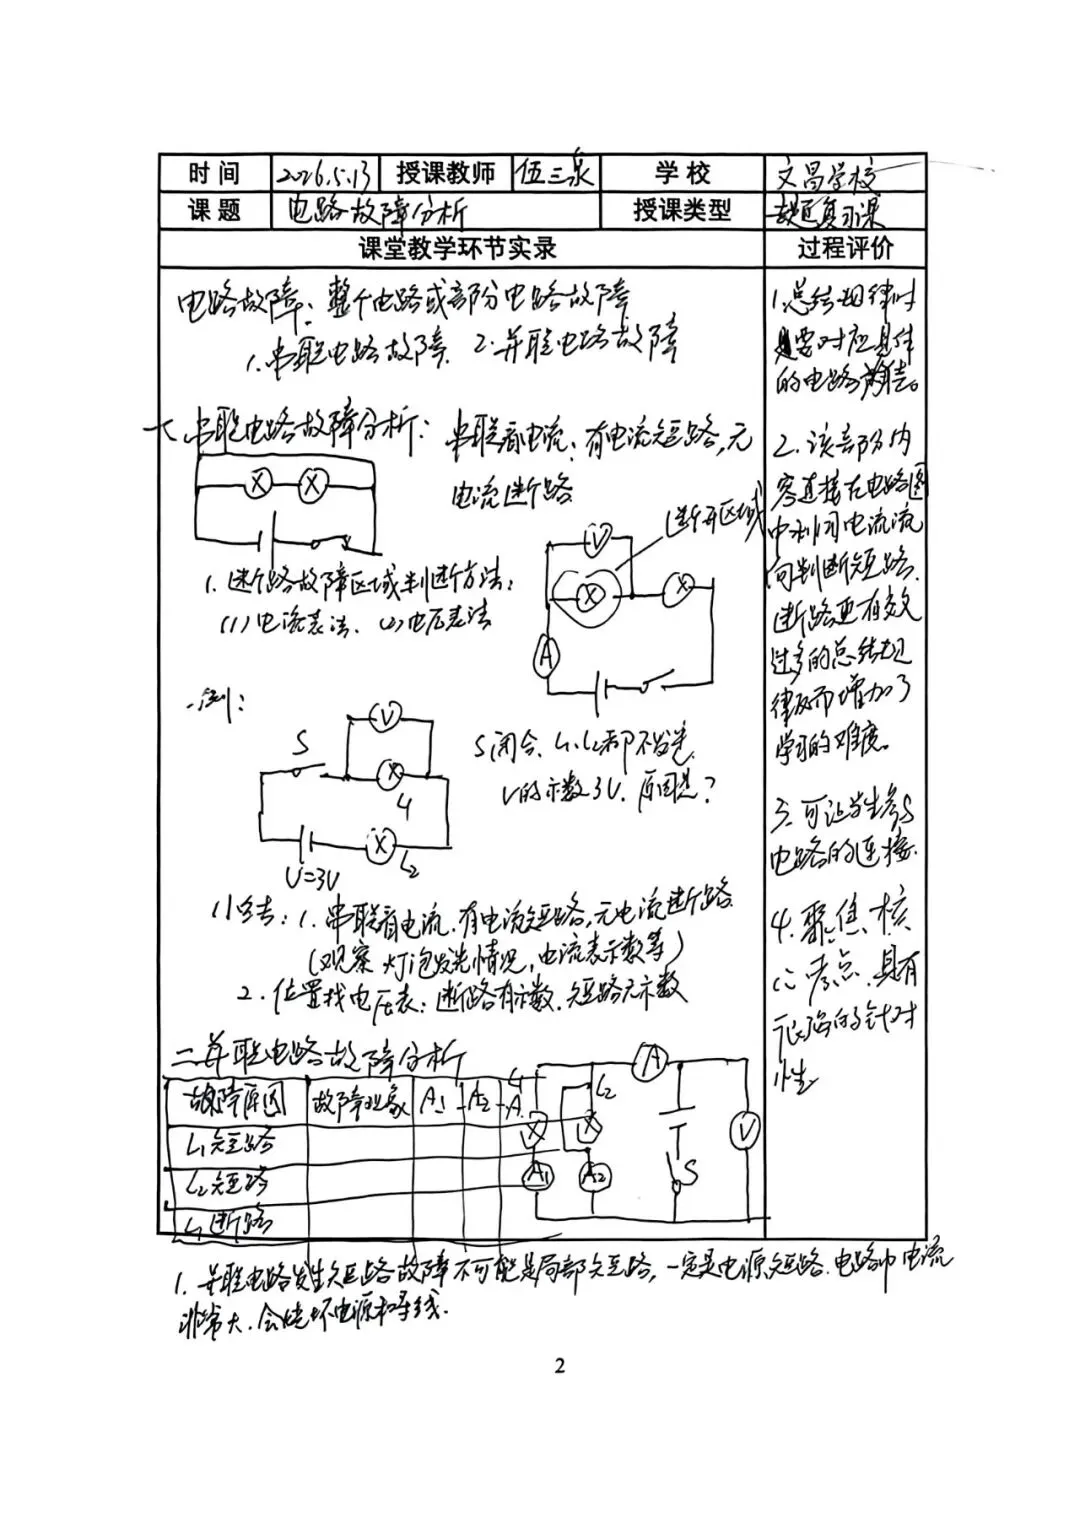 时间 2026.5.13 授课教师 伍三泉 学校 文昌学校
课题 电路故障分析 授课类型 专题复习课
课堂教学环节实录 过程评价
电路故障：整个电路或部份电路故障
1.串联电路故障. 2.并联电路故障
一、串联电路故障分析：串联看电流：有电流短路,无
电流断路
断开区域
V
A
1.断路故障区域判断方法：
(1)电流表法. (2)电压表法
例：
V
S
L1
L2
U=3V
S闭合. L1、L2都不发光
V的示数3V. 原因是？
小结：1.串联看电流.有电流短路,无电流断路.
(观察灯泡发光情况,电流表示数等)
2.位置找电压表：断路有示数.短路无示数
二、并联电路故障分析
故障原因 故障现象 A1 A2 A
L1短路
L2短路
L1断路
L1 L2 A
V
A1 A2 S
1.并联电路发生短路故障不可能是局部短路,一定是电源短路.电路中电流
非常大.会烧坏电源和导线.
1.总结规律时
要对应具体
的电路
2.该部分内
容直接在电路图
中利用电流流
向判断短路.
断路更有效
过多的总结规
律反而增加了
学习的难度。
3.可让学生参与
电路的连接.
4.聚焦核
心考点.具有
很强的针对
性
2